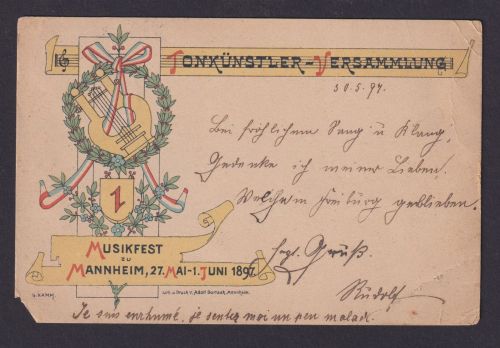 TONKÜNSTLER-VERSAMMLUNG
30.5.97.
Bei fröhlichem Sang u. Klang,
Gedenke ich meiner Lieben,
Welche in Freiburg geblieben.
Gruß.
Rudolf
1
MUSIKFEST
ZU
MANNHEIM, 27. MAI-1. JUNI 1897.
G. KAMM.
Lith. u. Druck v. Adolf Mannheim.
Je suis enrhumé, je sentez moi un peu malade.